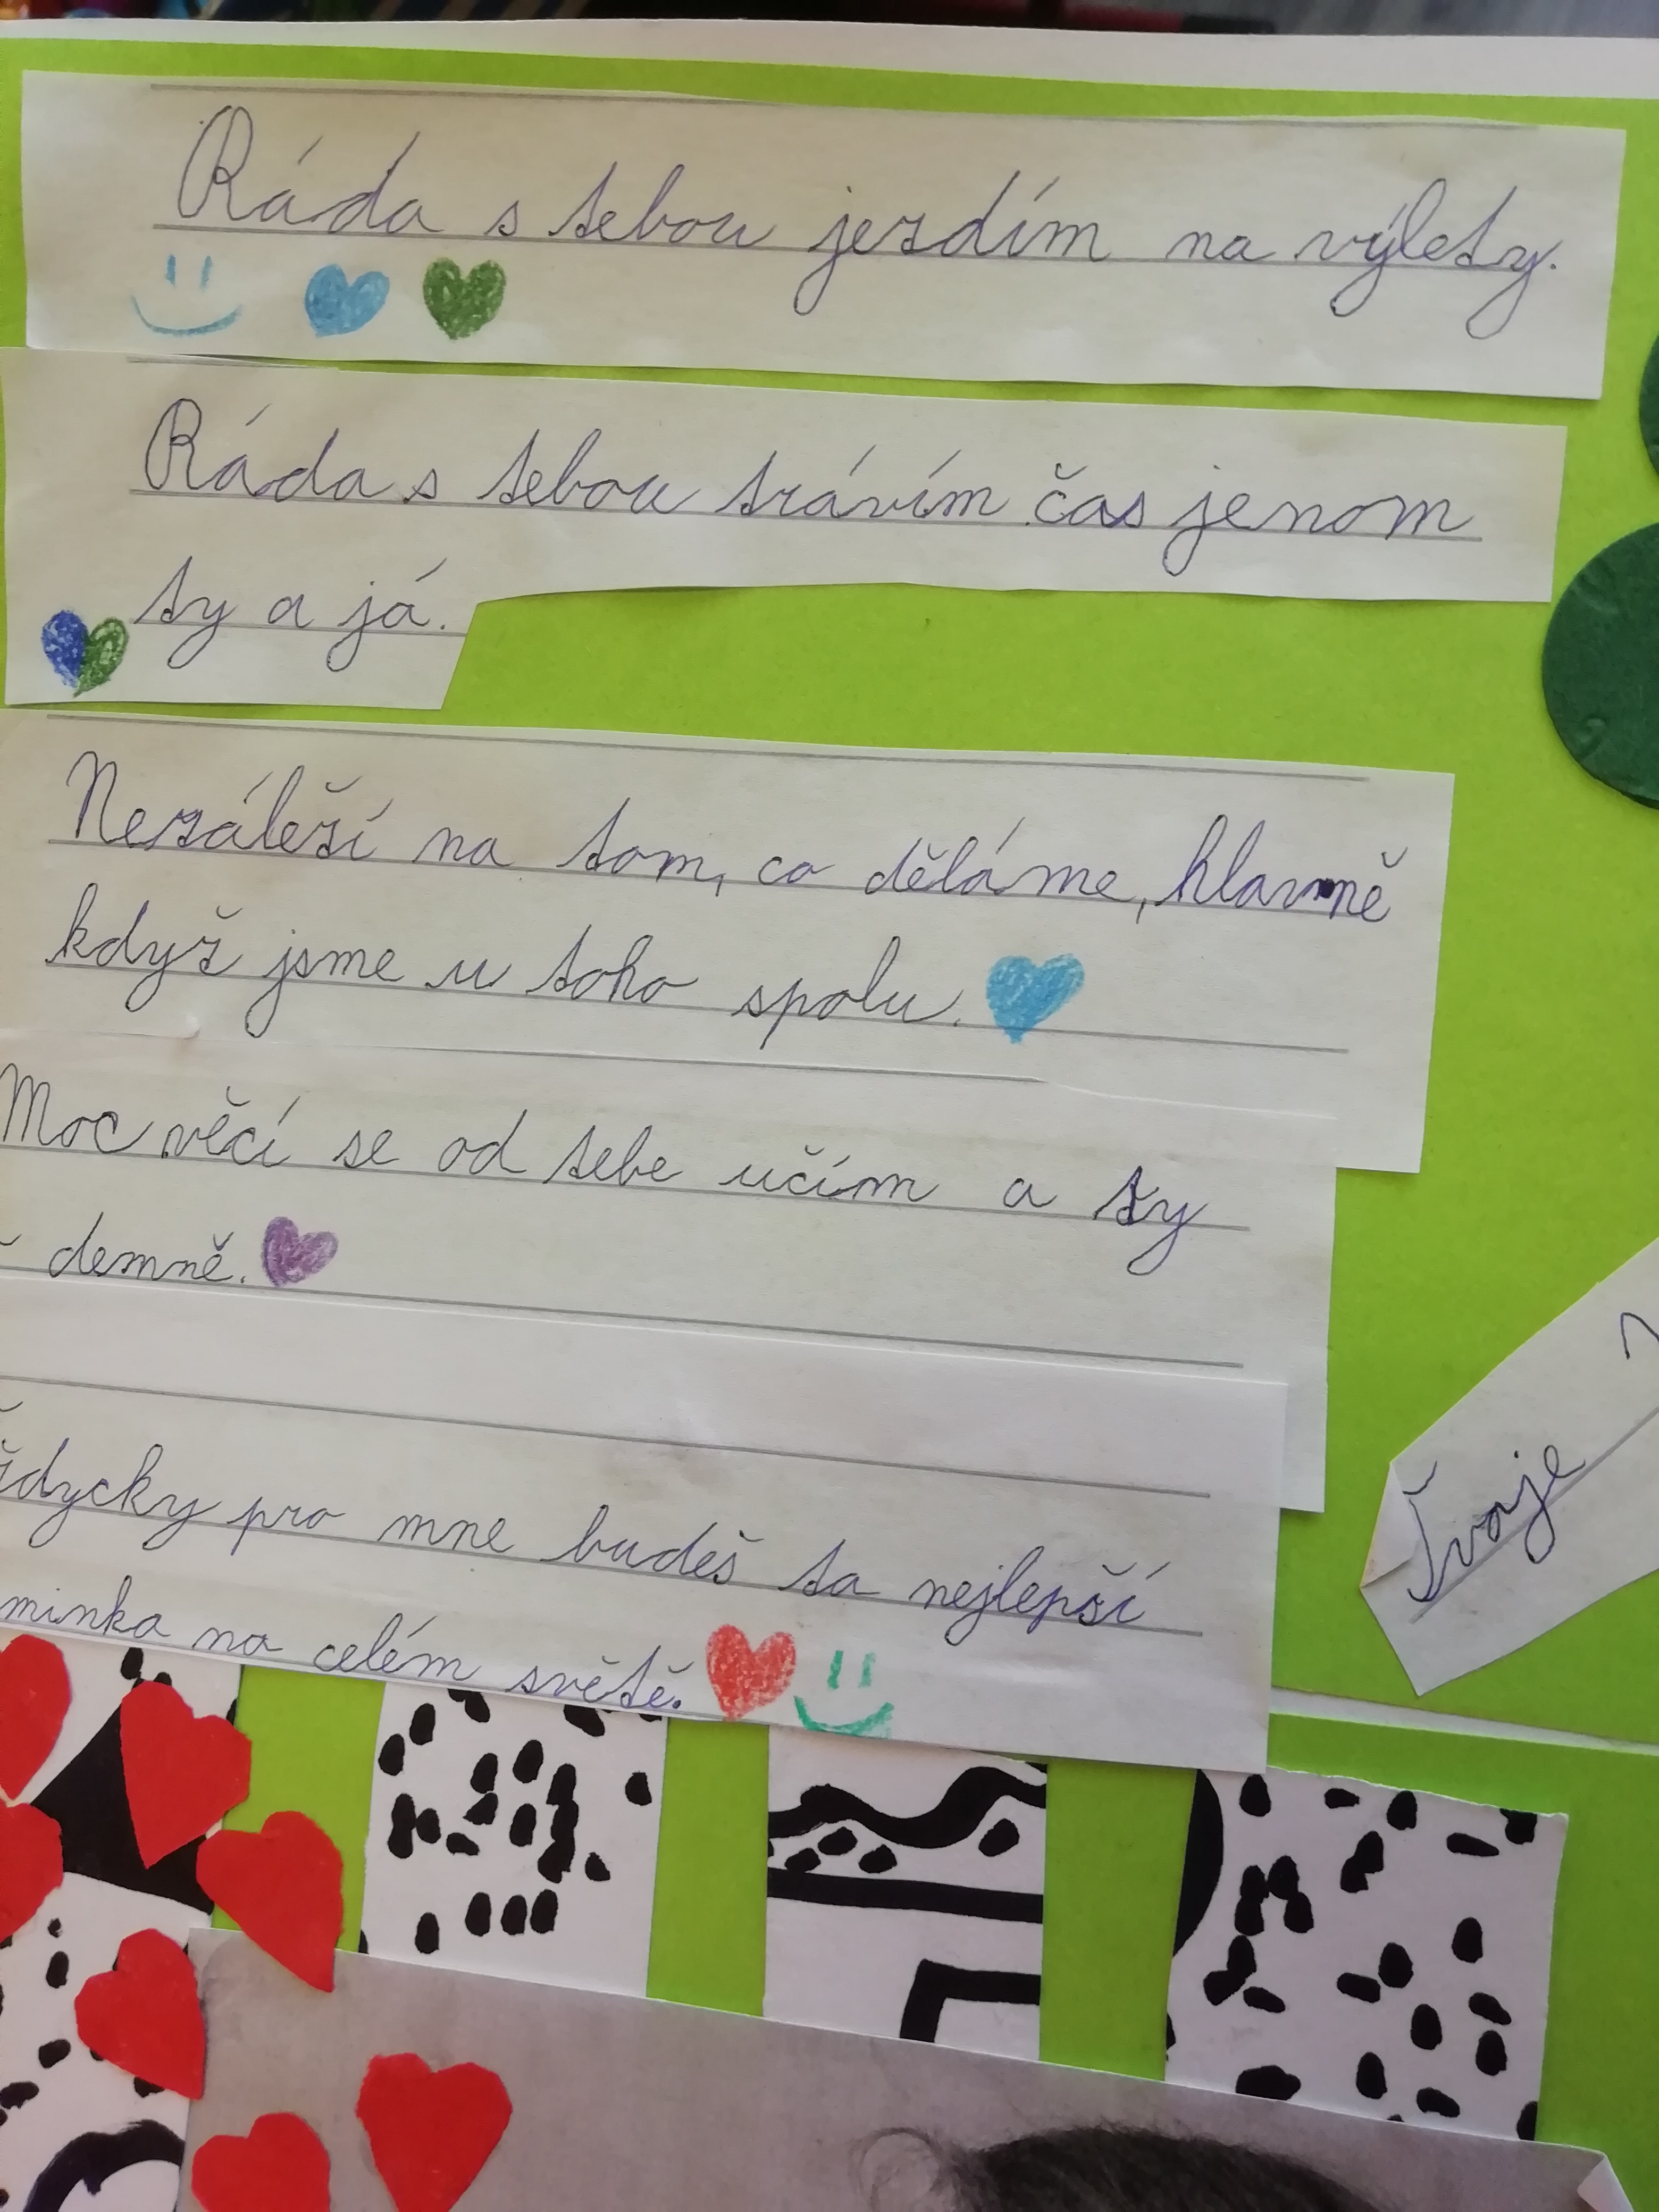 Ráda s tebou jezdím na výlety.
Ráda s tebou trávím čas jenom
ty a já.
Nezáleží na tom, co děláme, hlavně
když jsme u toho spolu.
Moc věcí se od tebe učím a ty
demně.
pro mne budeš ta nejlepší
na celém světě.
Tvoje